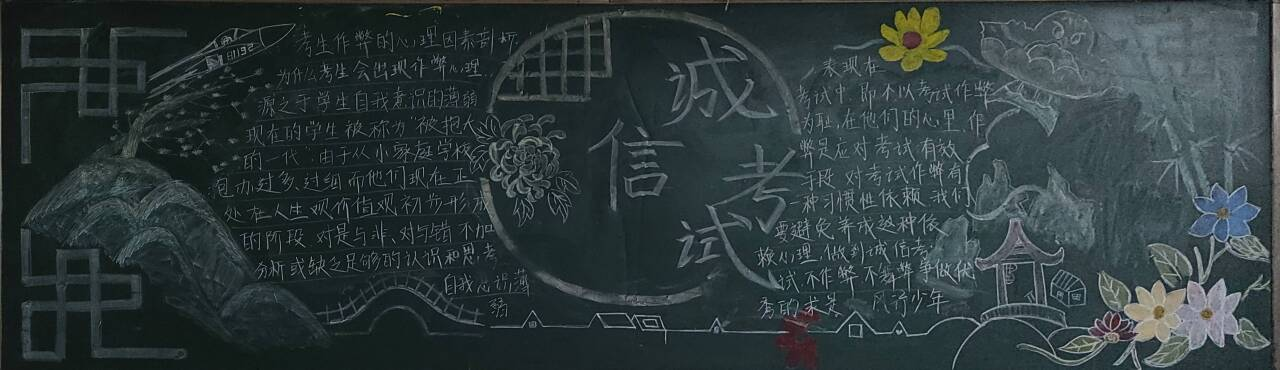 考生作弊的心理因素剖析
为什么考生会出现作弊心理
源之于学生自我意识的薄弱
现在的学生被称为“被抱大
的一代”由于从小家庭学校
包办过多、过细而他们现在正
处在人生观价值观初步形成
的阶段 对是与非、对与错 不加
分析或缺乏足够的认识和思考
自我意识薄
弱
诚
信
考
试
表现在
考试中 即不以考试作弊
为耻,在他们的心里,作
弊是应对考试有效
手段 对考试作弊有
一种习惯性依赖 我们
要避免养成这种依
赖心理,做到诚信考
试 不作弊 不舞弊 争做优
秀的求是 风行少年